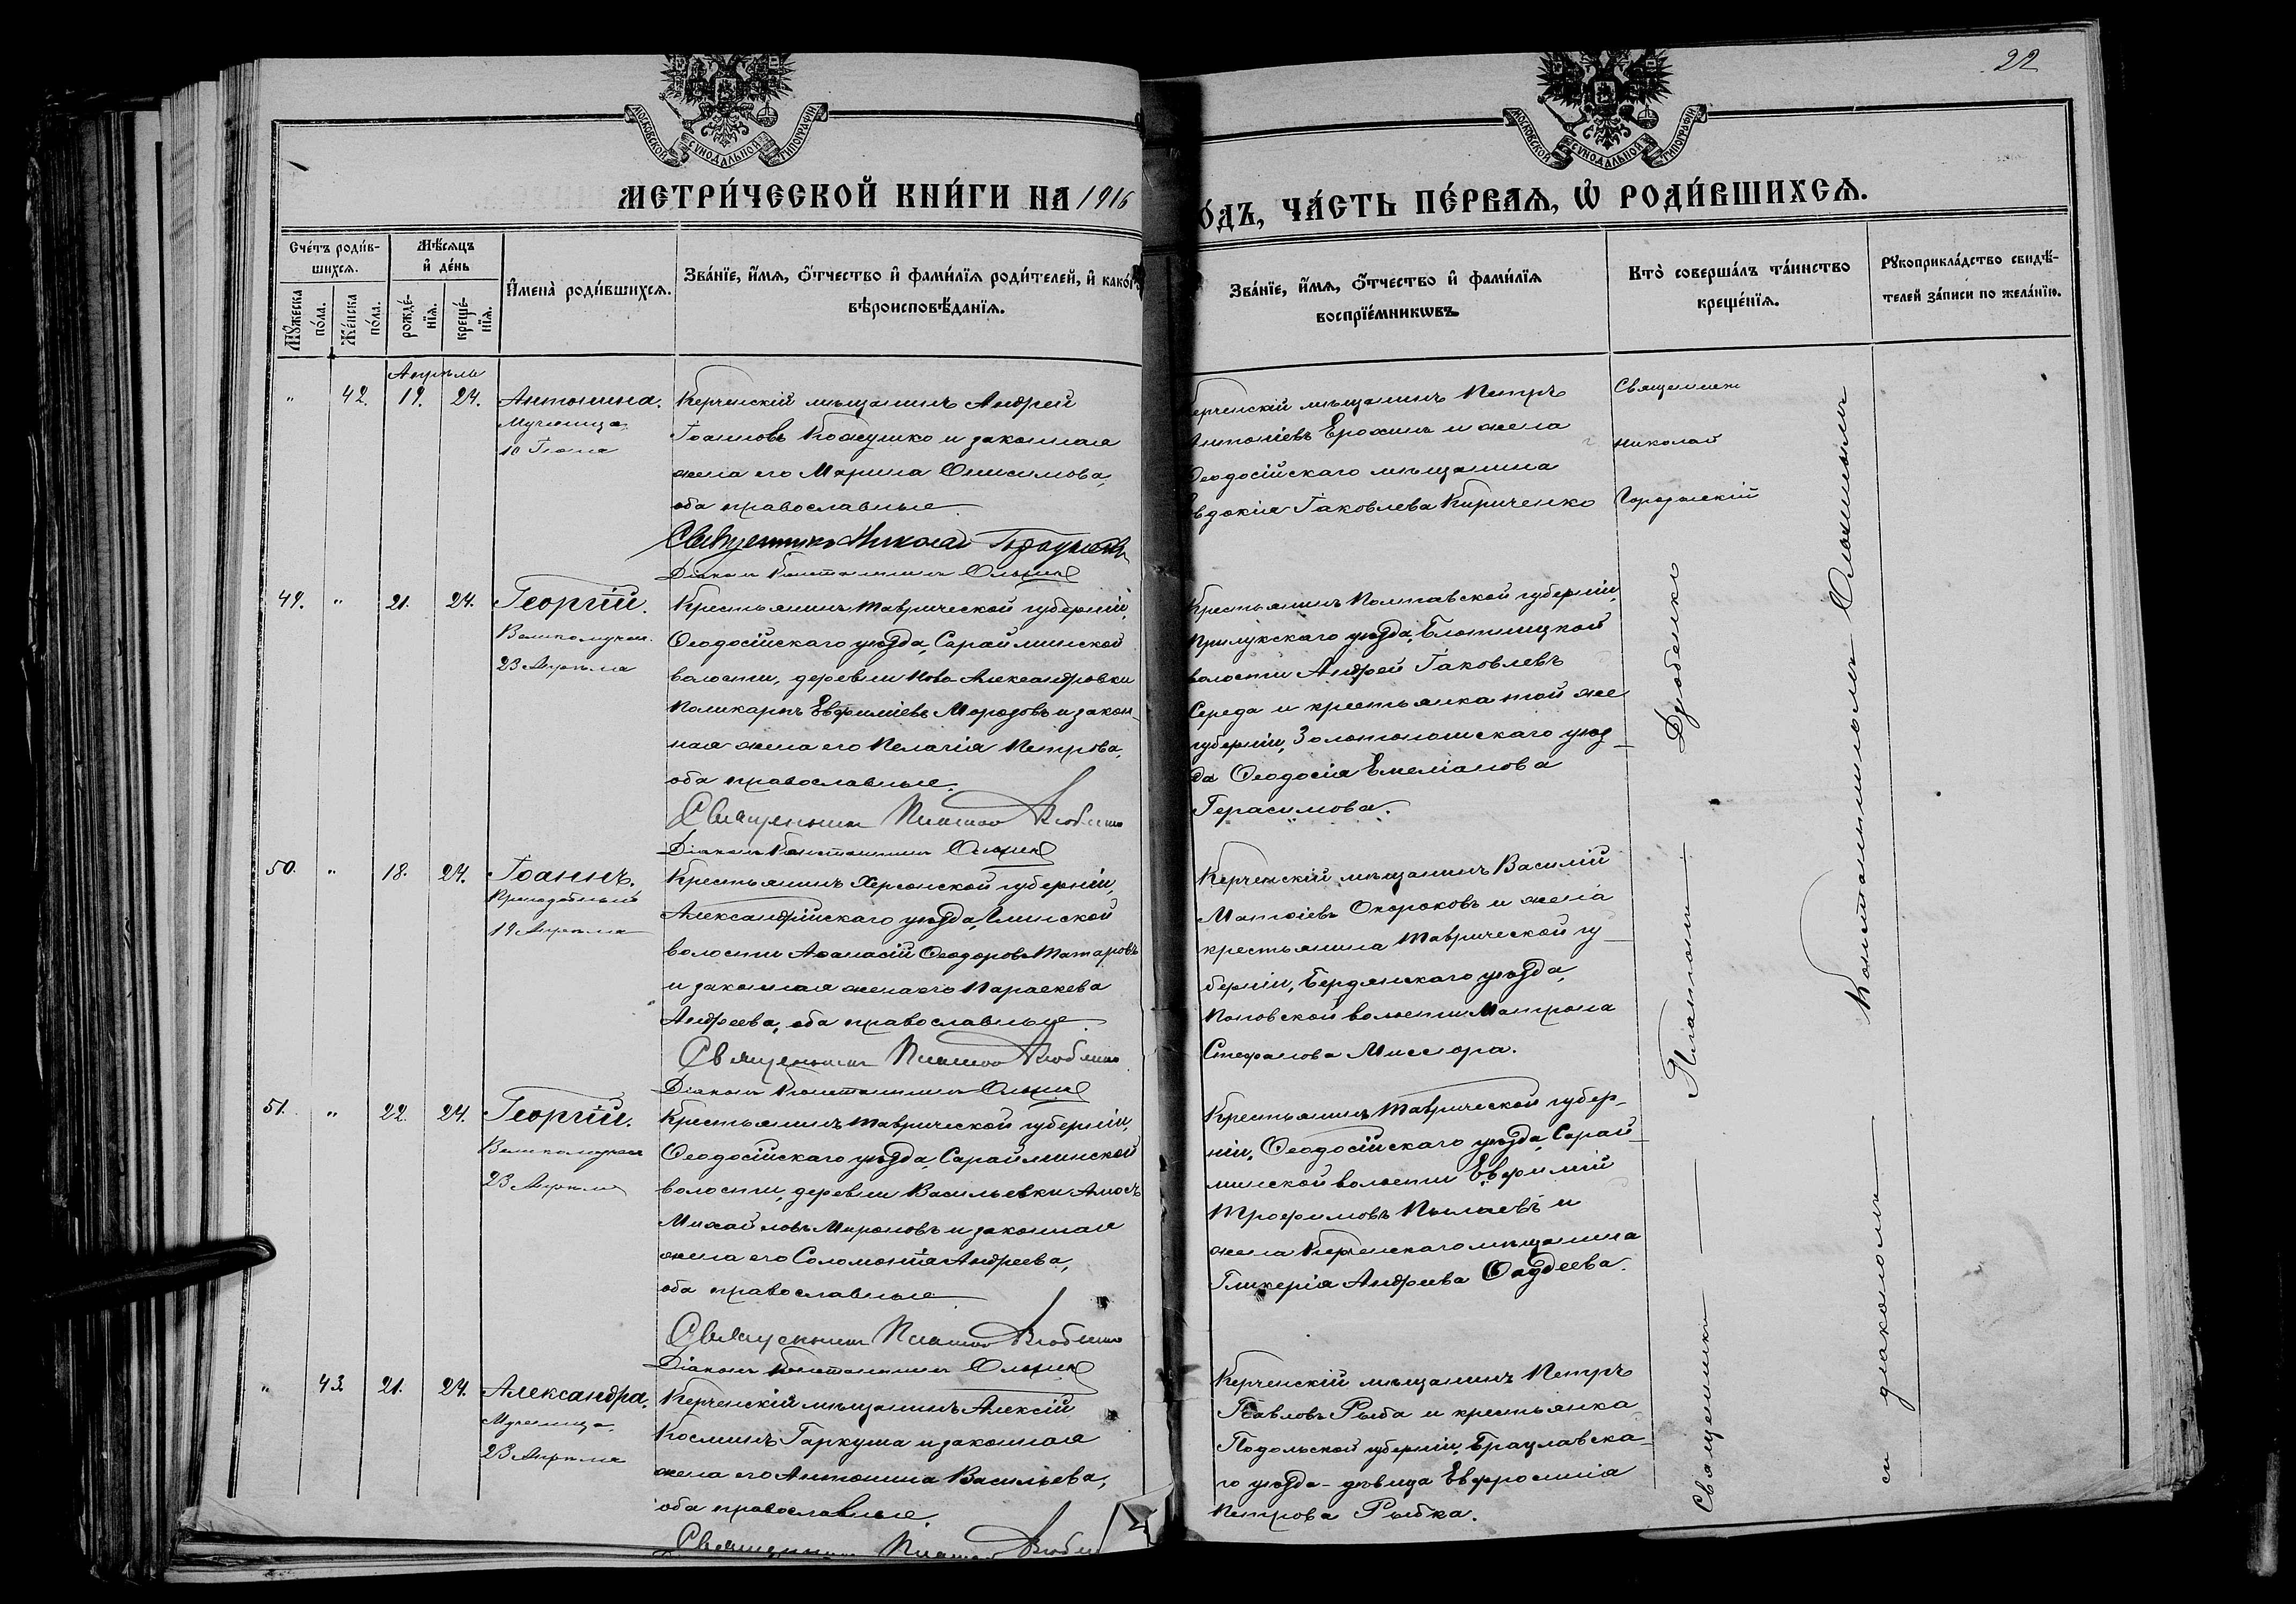 22
МОСКОВСКОЙ СѴНОДАЛЬНОЙ ТИПОГРАФІИ
МОСКОВСКОЙ СѴНОДАЛЬНОЙ ТИПОГРАФІИ
МЕТРИ́ЧЕСКОЙ КНИ́ГИ НА 1916
О́ДЪ, ЧА́СТЬ ПЕ́РВАЯ, Ѡ҆ РОДИ́ВШИХСЯ.
Сче́тъ роди́в-
шихся.
Мꙋ́жеска
по́ла.
Же́нска
по́ла.
Мѣ́сяцъ
и҆ де́нь
рожде́-
нїя.
креще́-
нїя.
И҆мена̀ роди́вшихся.
Зва́нїе, и҆́мя, ѻ҆́тчество и҆ фами́лїя роди́телей, и҆ како́г
вѣроисповѣ́данїя.
Зва́нїе, и҆́мя, ѻ҆́тчество и҆ фами́лїя
воспрїе́мникѡвъ.
Кто̀ соверша́лъ та́инство
креще́нїя.
Рꙋкоприкла́дство свидѣ́-
телей за́писи по жела́нїю.
Апрѣль
" 42. 19. 24. Антонина.
Мученица
10 Іюня
Керченскій мѣщанинъ Андрей
Іоанновъ Кожушко и законная
жена его Марина Онисимова,
оба православные.
Священникъ Николай
Діаконъ Константинъ
ерченскій мѣщанинъ Петръ
Антоніевъ Ерохинъ и жена
Ѳеодосійскаго мѣщанина
вдокія Іаковлева Кириченко
Священникъ
Николай
49. " 21. 24. Георгій.
Великомучен.
23 Апрѣля
Крестьянинъ Таврической губерніи,
Ѳеодосійскаго уѣзда, Сарайминской
волости, деревни Ново Александровки
Поликарпъ Евфиміевъ Морозовъ и закон-
ная жена его Пелагія Петрова,
оба православные.
Священникъ Платонъ
Діаконъ Константинъ
Крестьянинъ Полтавской губерніи,
Прилукскаго уѣзда,
волости Андрей Іаковлевъ
Середа и крестьянка той же
губерніи, Золотоношскаго уѣз-
да Ѳеодосія Емеліанова
Герасимова.
50. " 18. 24. Іоаннъ.
Преподобный
19 Апрѣля
Крестьянинъ Херсонской губерніи,
Александрійскаго уѣзда, Глинской
волости Аѳанасій Ѳеодоровъ Татаровъ
и законная жена его Параскева
Андреева, оба православные.
Священникъ Платонъ
Діаконъ Константинъ
Керченскій мѣщанинъ Василій
Матѳіевъ Окороковъ и жена
крестьянина Таврической гу-
берніи, Бердянскаго уѣзда,
Поповской волости Матрона
Стефанова Миснора.
51. " 22. 24. Георгій.
Великомучен
23 Апрѣля
Крестьянинъ Таврической губерніи,
Ѳеодосійскаго уѣзда, Сарайминской
волости, деревни Васильевки Амосъ
Михайловъ Мироновъ и законная
жена его Соломонія Андреева,
оба православные.
Священникъ Платонъ
Діаконъ Константинъ
Крестьянинъ Таврической губер-
ніи, Ѳеодосійскаго уѣзда, Сарай-
минской волости Евфимій
Трофимовъ Пылаевъ и
жена Керченскаго мѣщанина
Гликерія Андреева Ѳаддеева.
" 43. 21. 24. Александра.
Мученица
23 Апрѣля
Керченскій мѣщанинъ Алексій
Косминъ Гаркуша и законная
жена его Антонина Васильева,
оба православные.
Священникъ Платонъ
Керченскій мѣщанинъ Петръ
Павловъ Рыба и крестьянка
Подольской губерніи, Брацлавска-
го уѣзда - дѣвица Евфросинія
Петрова Рыбка.
Священникъ Платонъ
съ діакономъ Константиномъ